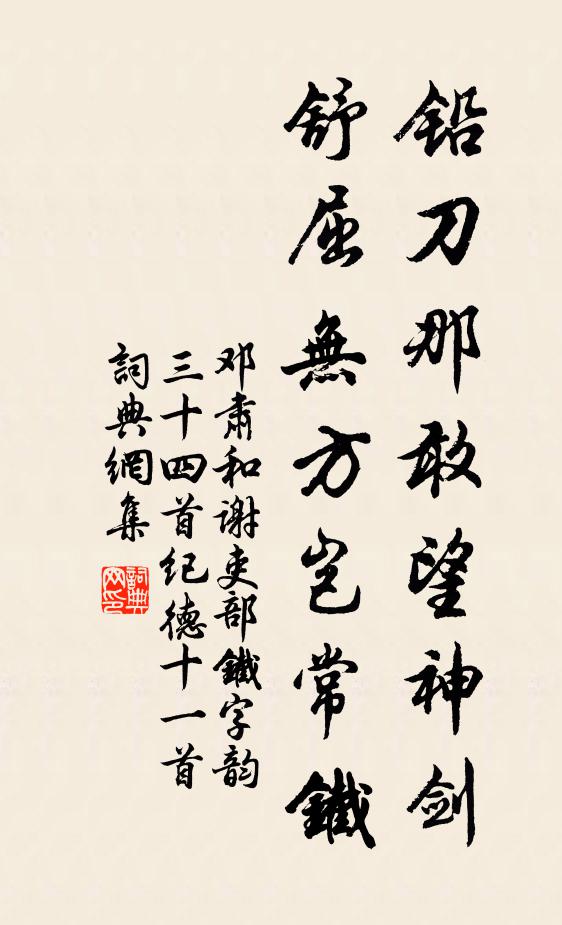 鉛刀那敢望神劍
舒屈無方豈常鐵
邓肅和谢吏部鐵字韵
三十四首纪德十一首
詞典網集
詞典網印